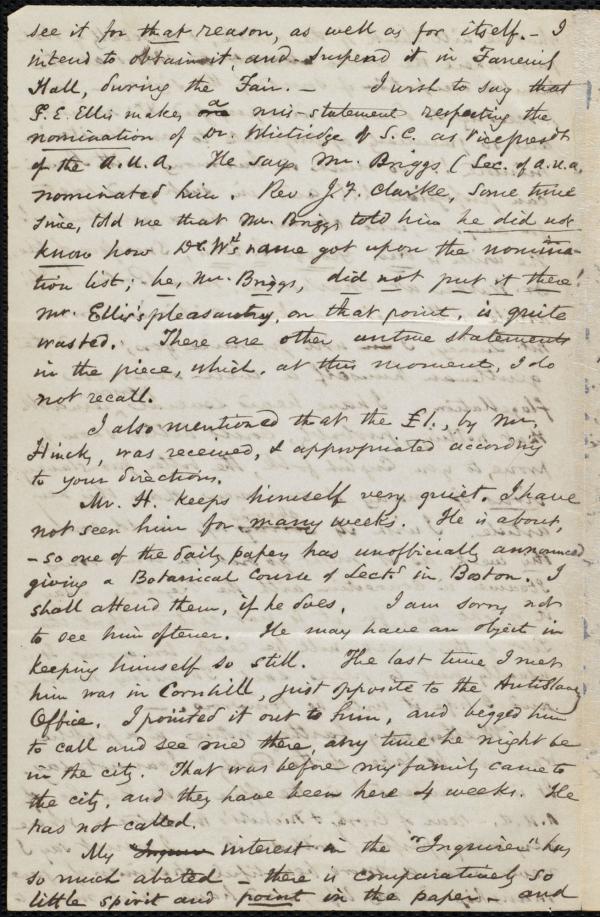 see it for that reason, as well as for itself. - I
intend to obtain it, and suspend it in Faneuil
Hall, during the Fair. - I wish to say that
G. E. Ellis makes a mis-statement respecting the
nomination of Dr. Whitridge of S.C. as Vicepresdt
of the A.U.A. He says Mr. Briggs (Sec. of A.U.A.
nominated him. Rev. J. F. Clarke, some time
since, told me that Mr. Briggs told him he did not
know how Dr. W's name got upon the nomina-
tion list; he, Mr. Briggs, did not put it there!
Mr. Ellis's pleasantry, on that point, is quite
wasted. There are other untrue statements
in the piece, which, at this moment, I do
not recall.
I also mentioned that the £1., by Mr.
Hincks, was received, & appropriated according
to your directions.
Mr. H. keeps himself very quiet. I have
not seen him for many weeks. He is about,
- so one of the daily papers has unofficially announced
giving a Botanical Course of Lects in Boston. I
shall attend them, if he does. I am sorry not
to see him oftener. He may have an object in
keeping himself so still. The last time I met
him was in Cornhill, just opposite to the Antislavy
Office. I pointed it out to him, and begged him
to call and see me there, any time he might be
in the city. That was before my family came to
the city, and they have been here 4 weeks. He
has not called.
My interest in the "Inquirer" has
so much abated - there is comparatively so
little spirit and point in the paper - and